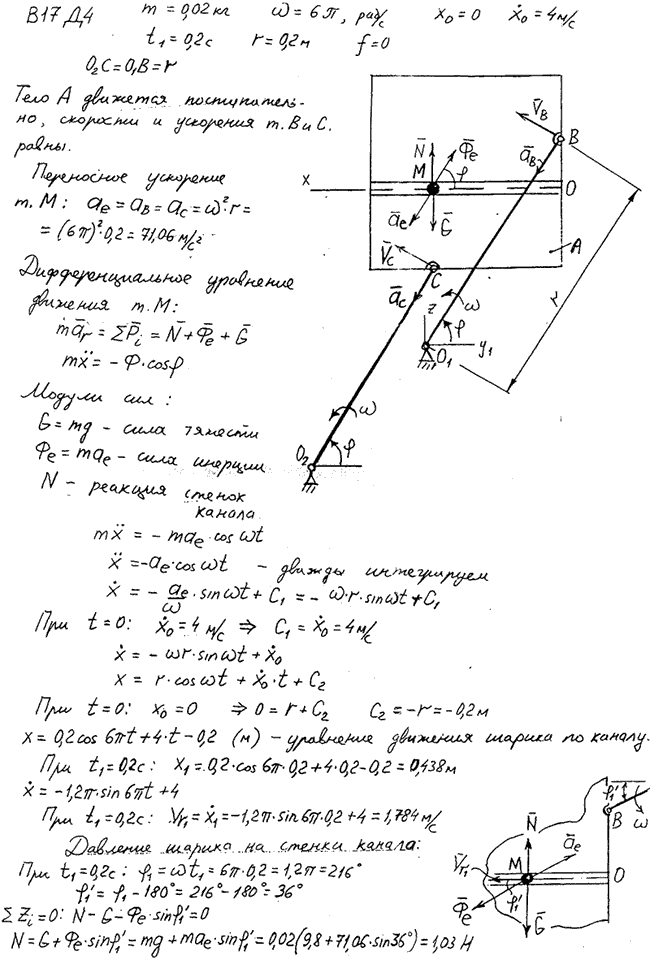 В17 Д4 m = 0,02 кг ω = 6π, рад/с x₀ = 0 ẋ₀ = 4 м/с
t₁ = 0,2 с r = 0,2 м f = 0
O₂C = O₁B = r
Тело А движется поступатель-
но, скорости и ускорения т. В и С.
равны.
Переносное ускорение
т. М: a̅e = a̅B = a̅C = ω²r =
= (6π)²·0,2 = 71,06 м/с²
Дифференциальное уравнение
движения т. М:
ma̅r = ΣP̅i = N̅ + Φ̅e + G̅
mẍ = - Φ·cosφ
Модули сил:
G = mg - сила тяжести
Φe = mae - сила инерции
N - реакция стенок
канала
mẍ = - mae·cos ωt
ẍ = -ae·cos ωt - дважды интегрируем
ẋ = - ae/ω·sin ωt + C₁ = - ω·r·sin ωt + C₁
При t = 0: ẋ₀ = 4 м/с ⇒ C₁ = ẋ₀ = 4 м/с
ẋ = - ωr·sin ωt + ẋ₀
x = r·cos ωt + ẋ₀·t + C₂
При t = 0: x₀ = 0 ⇒ 0 = r + C₂ C₂ = -r = -0,2 м
x = 0,2 cos 6πt + 4·t - 0,2 (м) - уравнение движения шарика по каналу.
При t₁ = 0,2 с: x₁ = 0,2·cos 6π·0,2 + 4·0,2 - 0,2 = 0,438 м
ẋ = -1,2π·sin 6πt + 4
При t₁ = 0,2 с: Vr₁ = ẋ₁ = -1,2π·sin 6π·0,2 + 4 = 1,784 м/с
Давление шарика на стенки канала:
При t₁ = 0,2 с: φ₁ = ωt₁ = 6π·0,2 = 1,2π = 216°
φ₁' = φ₁ - 180° = 216° - 180° = 36°
ΣZi = 0: N - G - Φe·sinφ₁' = 0
N = G + Φe·sinφ₁' = mg + mae·sinφ₁' = 0,02(9,8 + 71,06·sin 36°) = 1,03 Н
V̅B
B
N̅
Φ̅e
a̅B
M
φ
x
O
a̅e
G̅
V̅C
A
C
a̅C
ω
z
r
φ
O₁
y₁
ω
O₂
φ
φ₁'
B
ω
N̅
a̅e
V̅r₁
M
O
Φ̅e
φ₁'
G̅